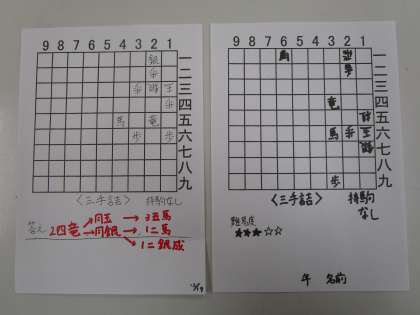 9 8 7 6 5 4 3 2 1
銀 一
歩 二
歩 三
歩 四
馬 竜 五
歩 歩 六
七
八
九
〈三手詰〉 持駒なし
答え 2四竜 → 同玉 → 3五馬
→ 同銀 → 1二馬
→ 1二銀成
9 8 7 6 5 4 3 2 1
一
歩 二
三
竜 四
五
馬 歩 玉 六
七
八
歩 九
〈三手詰〉 持駒
なし
難易度
★★★☆☆
年 名前